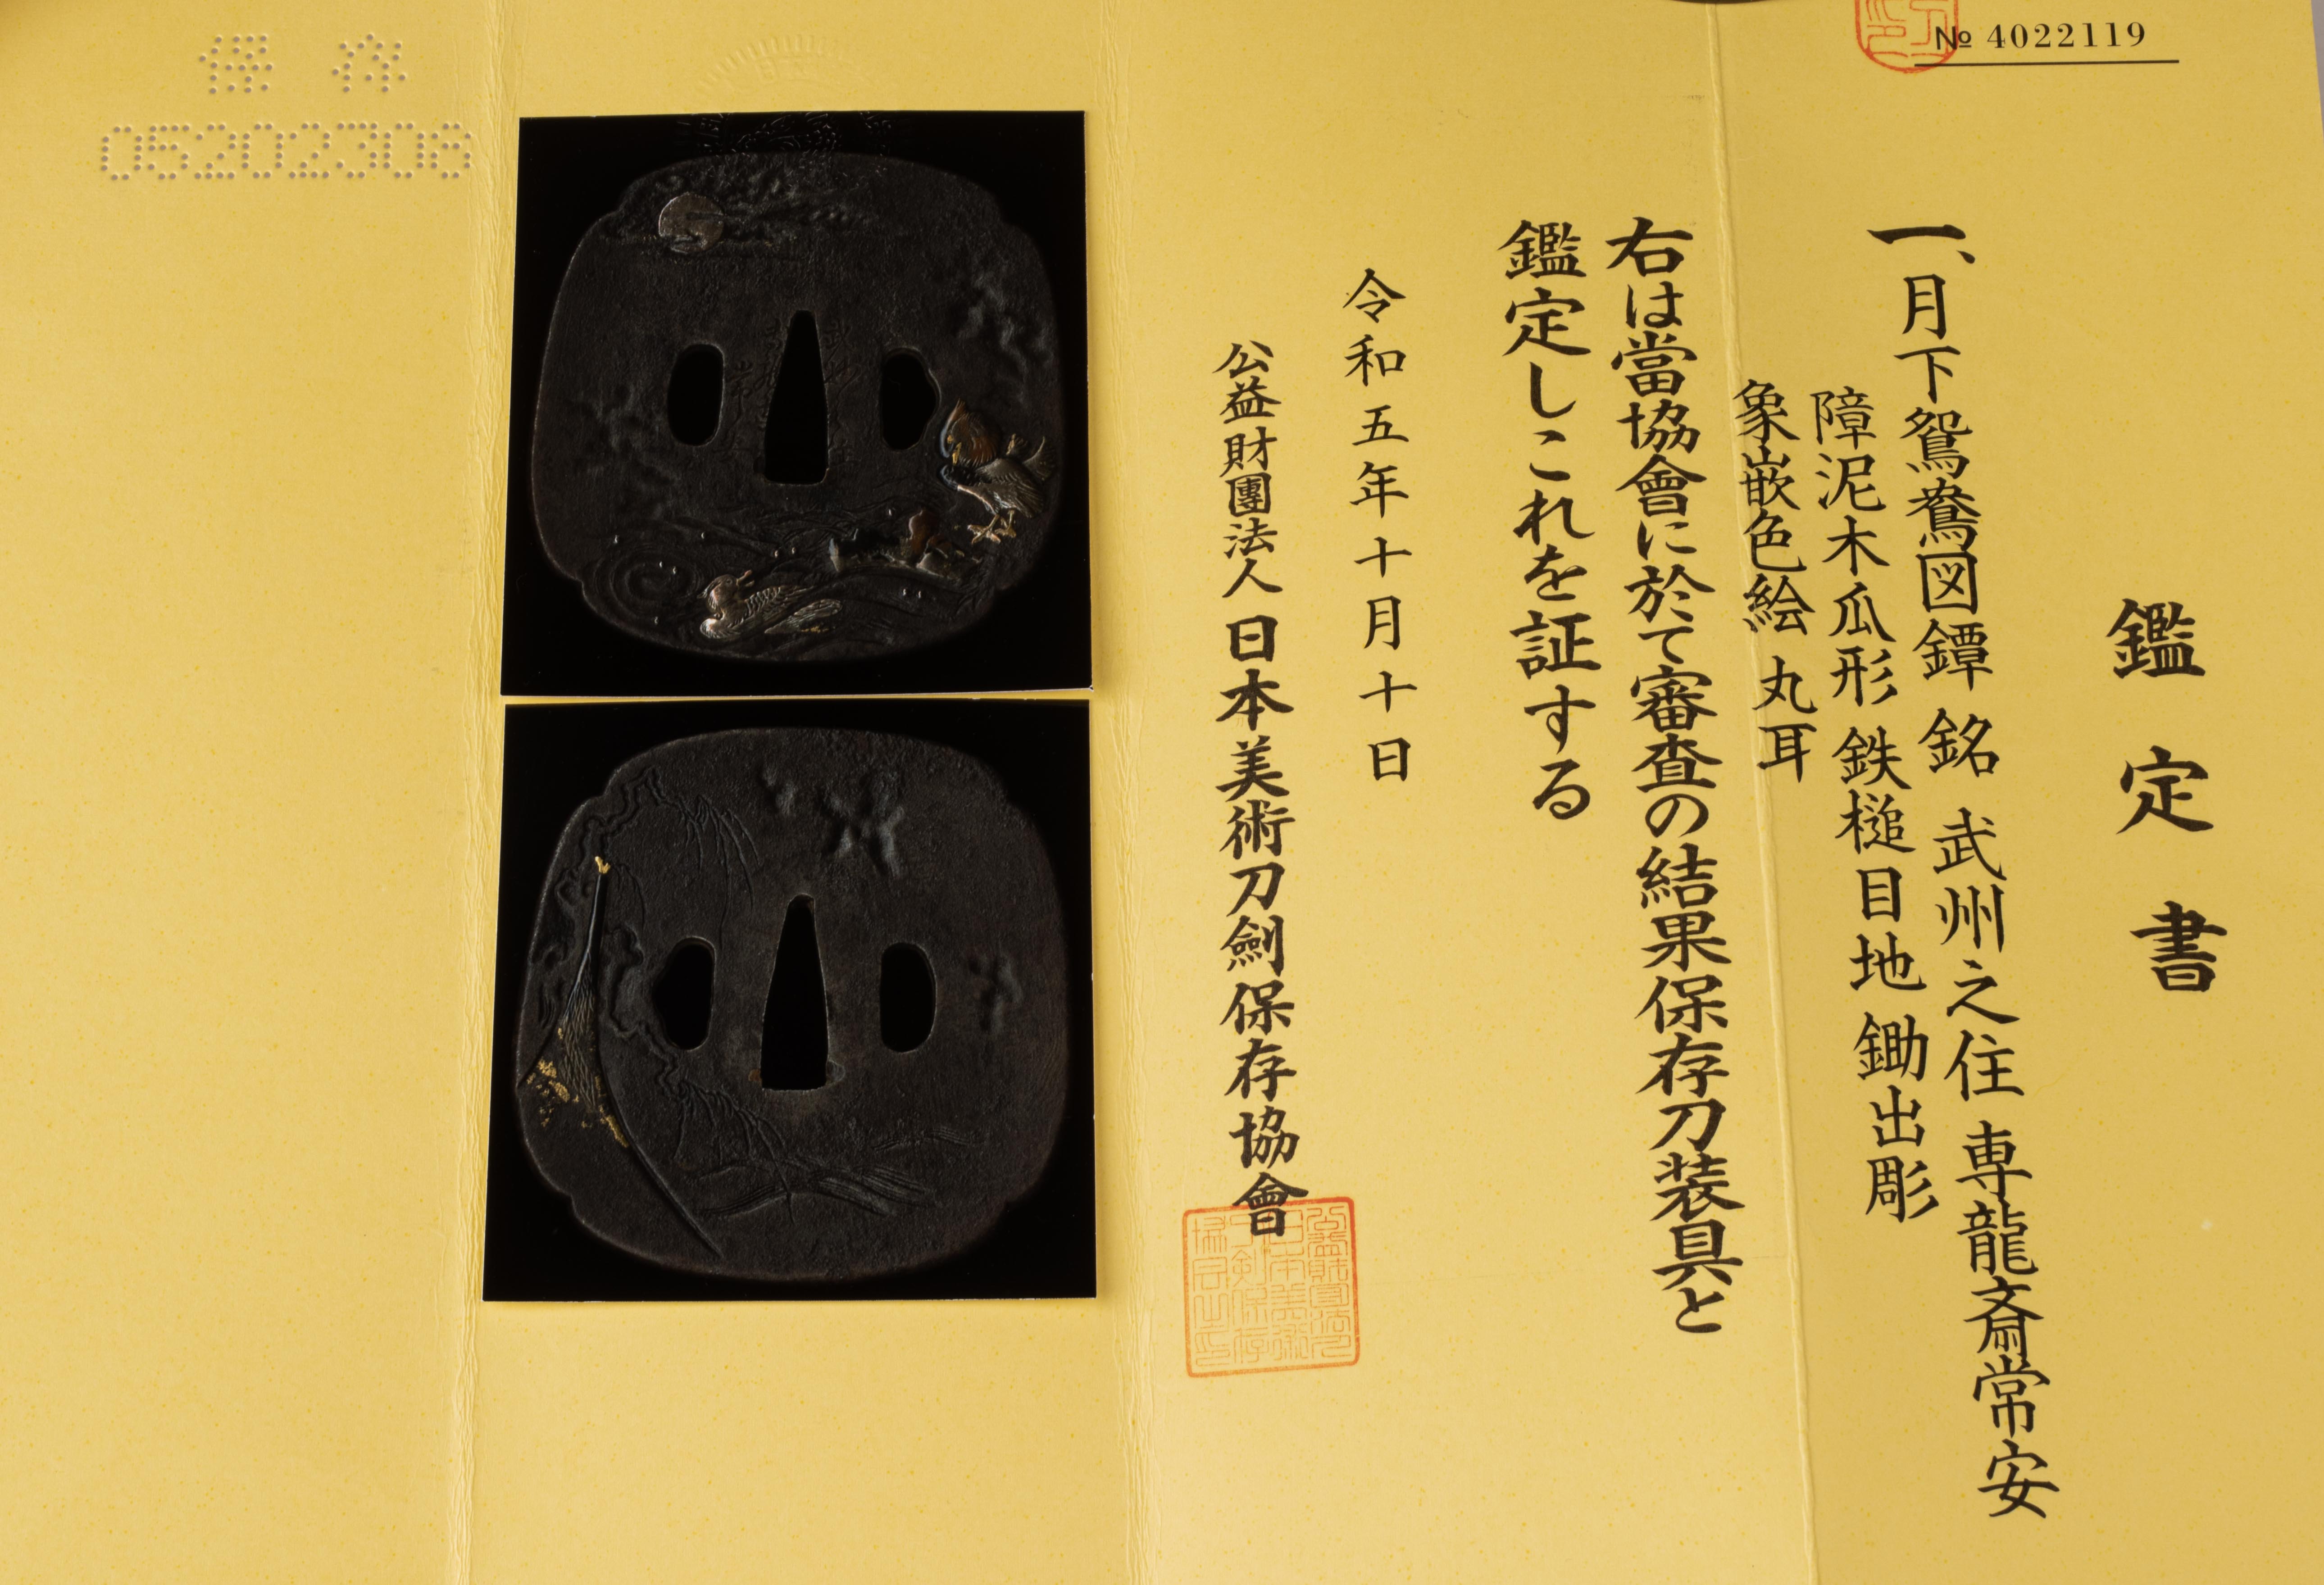 № 4022119
鑑定書
一、月下鴛鴦図鐔 銘 武州之住 専龍斎常安
障泥木瓜形 鉄槌目地 鋤出彫
象嵌色絵 丸耳
右は當協會に於て審査の結果保存刀装具と
鑑定しこれを証する
令和五年十月十日
公益財團法人 日本美術刀劍保存協會
保存
05202308